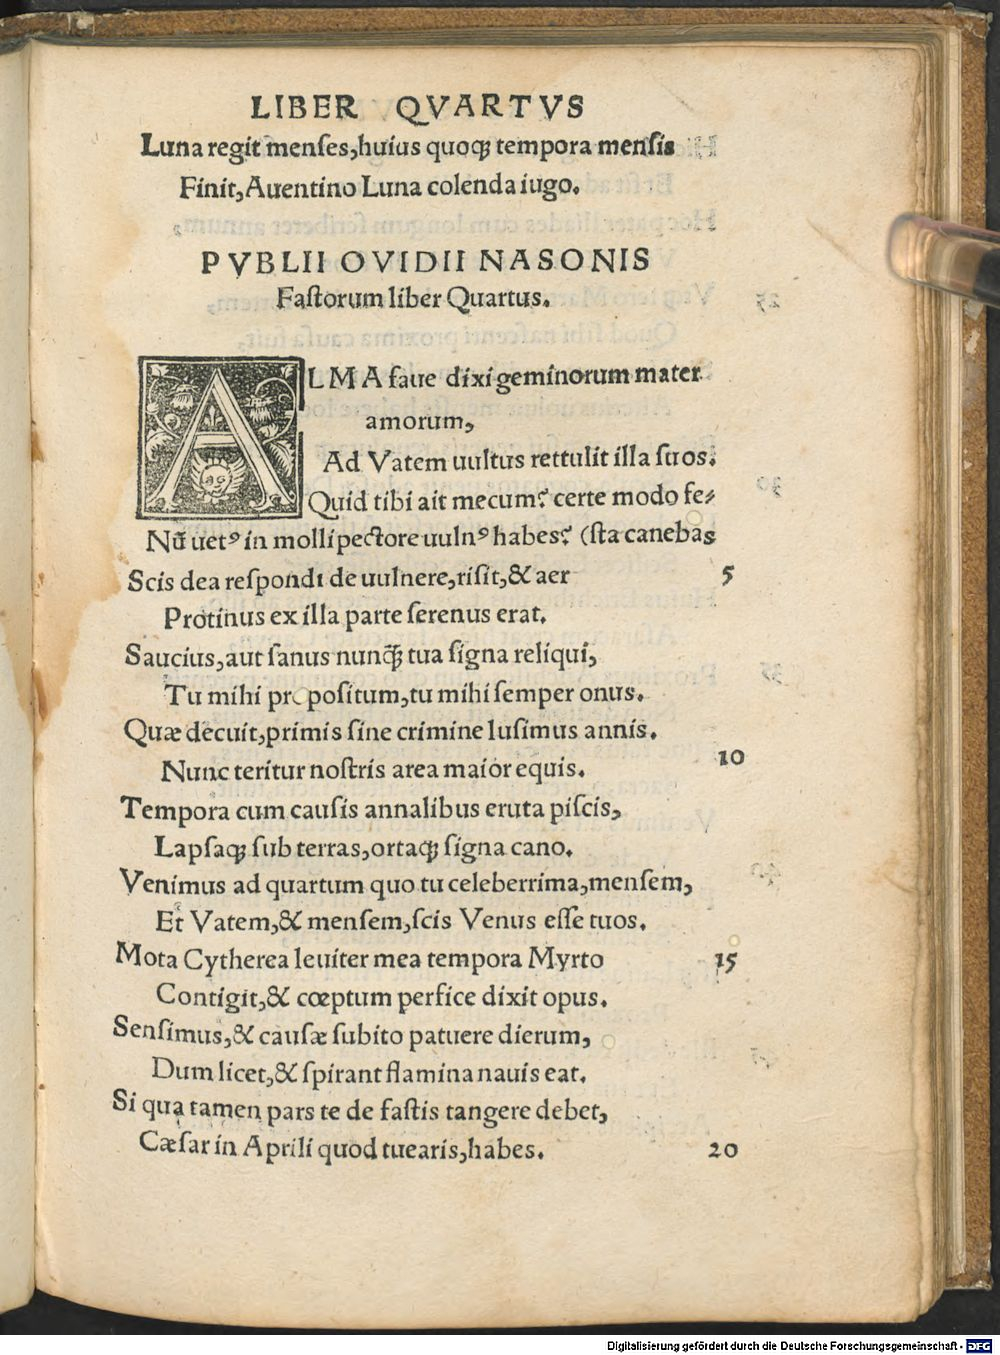 LIBER QVARTVS
Luna regit menſes,huius quoqꝫ tempora menſis
Finit,Auentino Luna colenda iugo.
PVBLII OVIDII NASONIS
Faſtorum liber Quartus.
ALMA faue dixi geminorum mater
amorum,
Ad Vatem uultus rettulit illa ſuos.
Quid tibi ait mecum? certe modo fe⸗
Nū uetꝰ in molli pectore uulnꝰ habes? (ſta canebas
Scis dea reſpondi de uulnere,riſit,& aer 5
Protinus ex illa parte ſerenus erat.
Saucius,aut ſanus nunq̄ꝫ tua ſigna reliqui,
Tu mihi propoſitum,tu mihi ſemper onus.
Quæ decuit,primis ſine crimine luſimus annis.
Nunc teritur noſtris area maior equis. 10
Tempora cum cauſis annalibus eruta piſcis,
Lapſaqꝫ ſub terras,ortaqꝫ ſigna cano.
Venimus ad quartum quo tu celeberrima,menſem,
Et Vatem,& menſem,ſcis Venus eſſe tuos.
Mota Cytherea leuiter mea tempora Myrto 15
Contigit,& cœptum perfice dixit opus.
Senſimus,& cauſæ ſubito patuere dierum,
Dum licet,& ſpirant flamina nauis eat.
Si qua tamen pars te de faſtis tangere debet,
Cæſar in Aprili quod tuearis,habes. 20
Digitalisierung gefördert durch die Deutsche Forschungsgemeinschaft - DFG